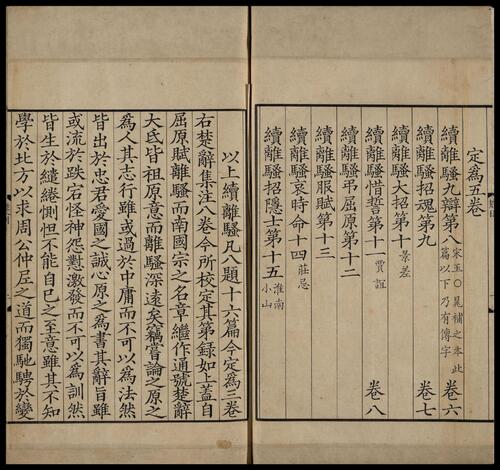 定為五卷
續離騷九辯第八 宋玉○晁補之本此篇以下乃有傳字 卷六
續離騷招魂第九 卷七
續離騷大招第十 景差
續離騷惜誓第十一 賈誼 卷八
續離騷弔屈原第十二
續離騷服賦第十三
續離騷哀時命十四 莊忌
續離騷招隱士第十五 淮南小山
以上續離騷凡八題十六篇今定為三卷
右楚辭集注八卷今所校定其第錄如上蓋自
屈原賦離騷而南國宗之名章繼作通號楚辭
大氐皆祖原意而離騷深遠矣竊嘗論之原之
為人其志行雖或過於中庸而不可以為法然
皆出於忠君愛國之誠心原之為書其辭旨雖
或流於跌宕怪神怨懟激發而不可以為訓然
皆生於繾綣惻怛不能自已之至意雖其不知
學於北方以求周公仲尼之道而獨馳騁於變